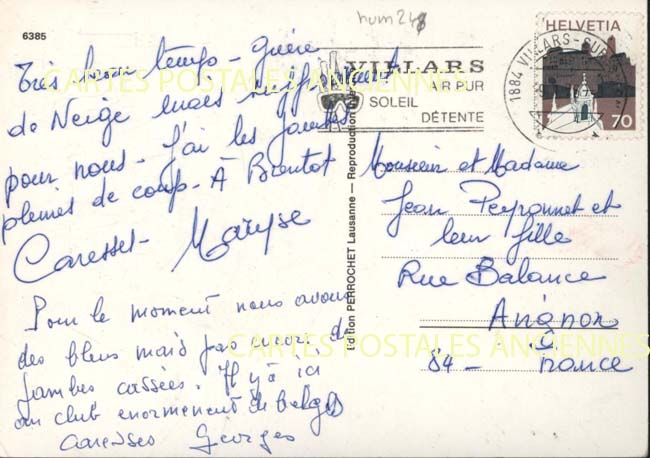 6385
hum 248
Très beau temps - guère
de Neige mais suffisamment
pour nous - J'ai les jambes
pleines de coups - À Bientot
Caresses - Maryse
Pour le moment nous avons
des bleus mais pas encore de
jambes cassées. Il y a ici
un club enormement de belges
caresses Georges
Edition PERROCHET Lausanne — Reproduction
VILLARS
AIR PUR
SOLEIL
DÉTENTE
1884 VILLARS-SUR
HELVETIA
70
Monsieur et Madame
Jean Peyronnet et
leur fille
Rue Balance
Avignon
84 - France
CARTES POSTALES ANCIENNES
CARTES POSTALES ANCIENNES